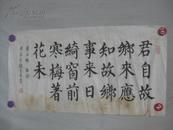 君自故
鄉來應
知故鄉
事来日
綺窗前
寒梅著
花未